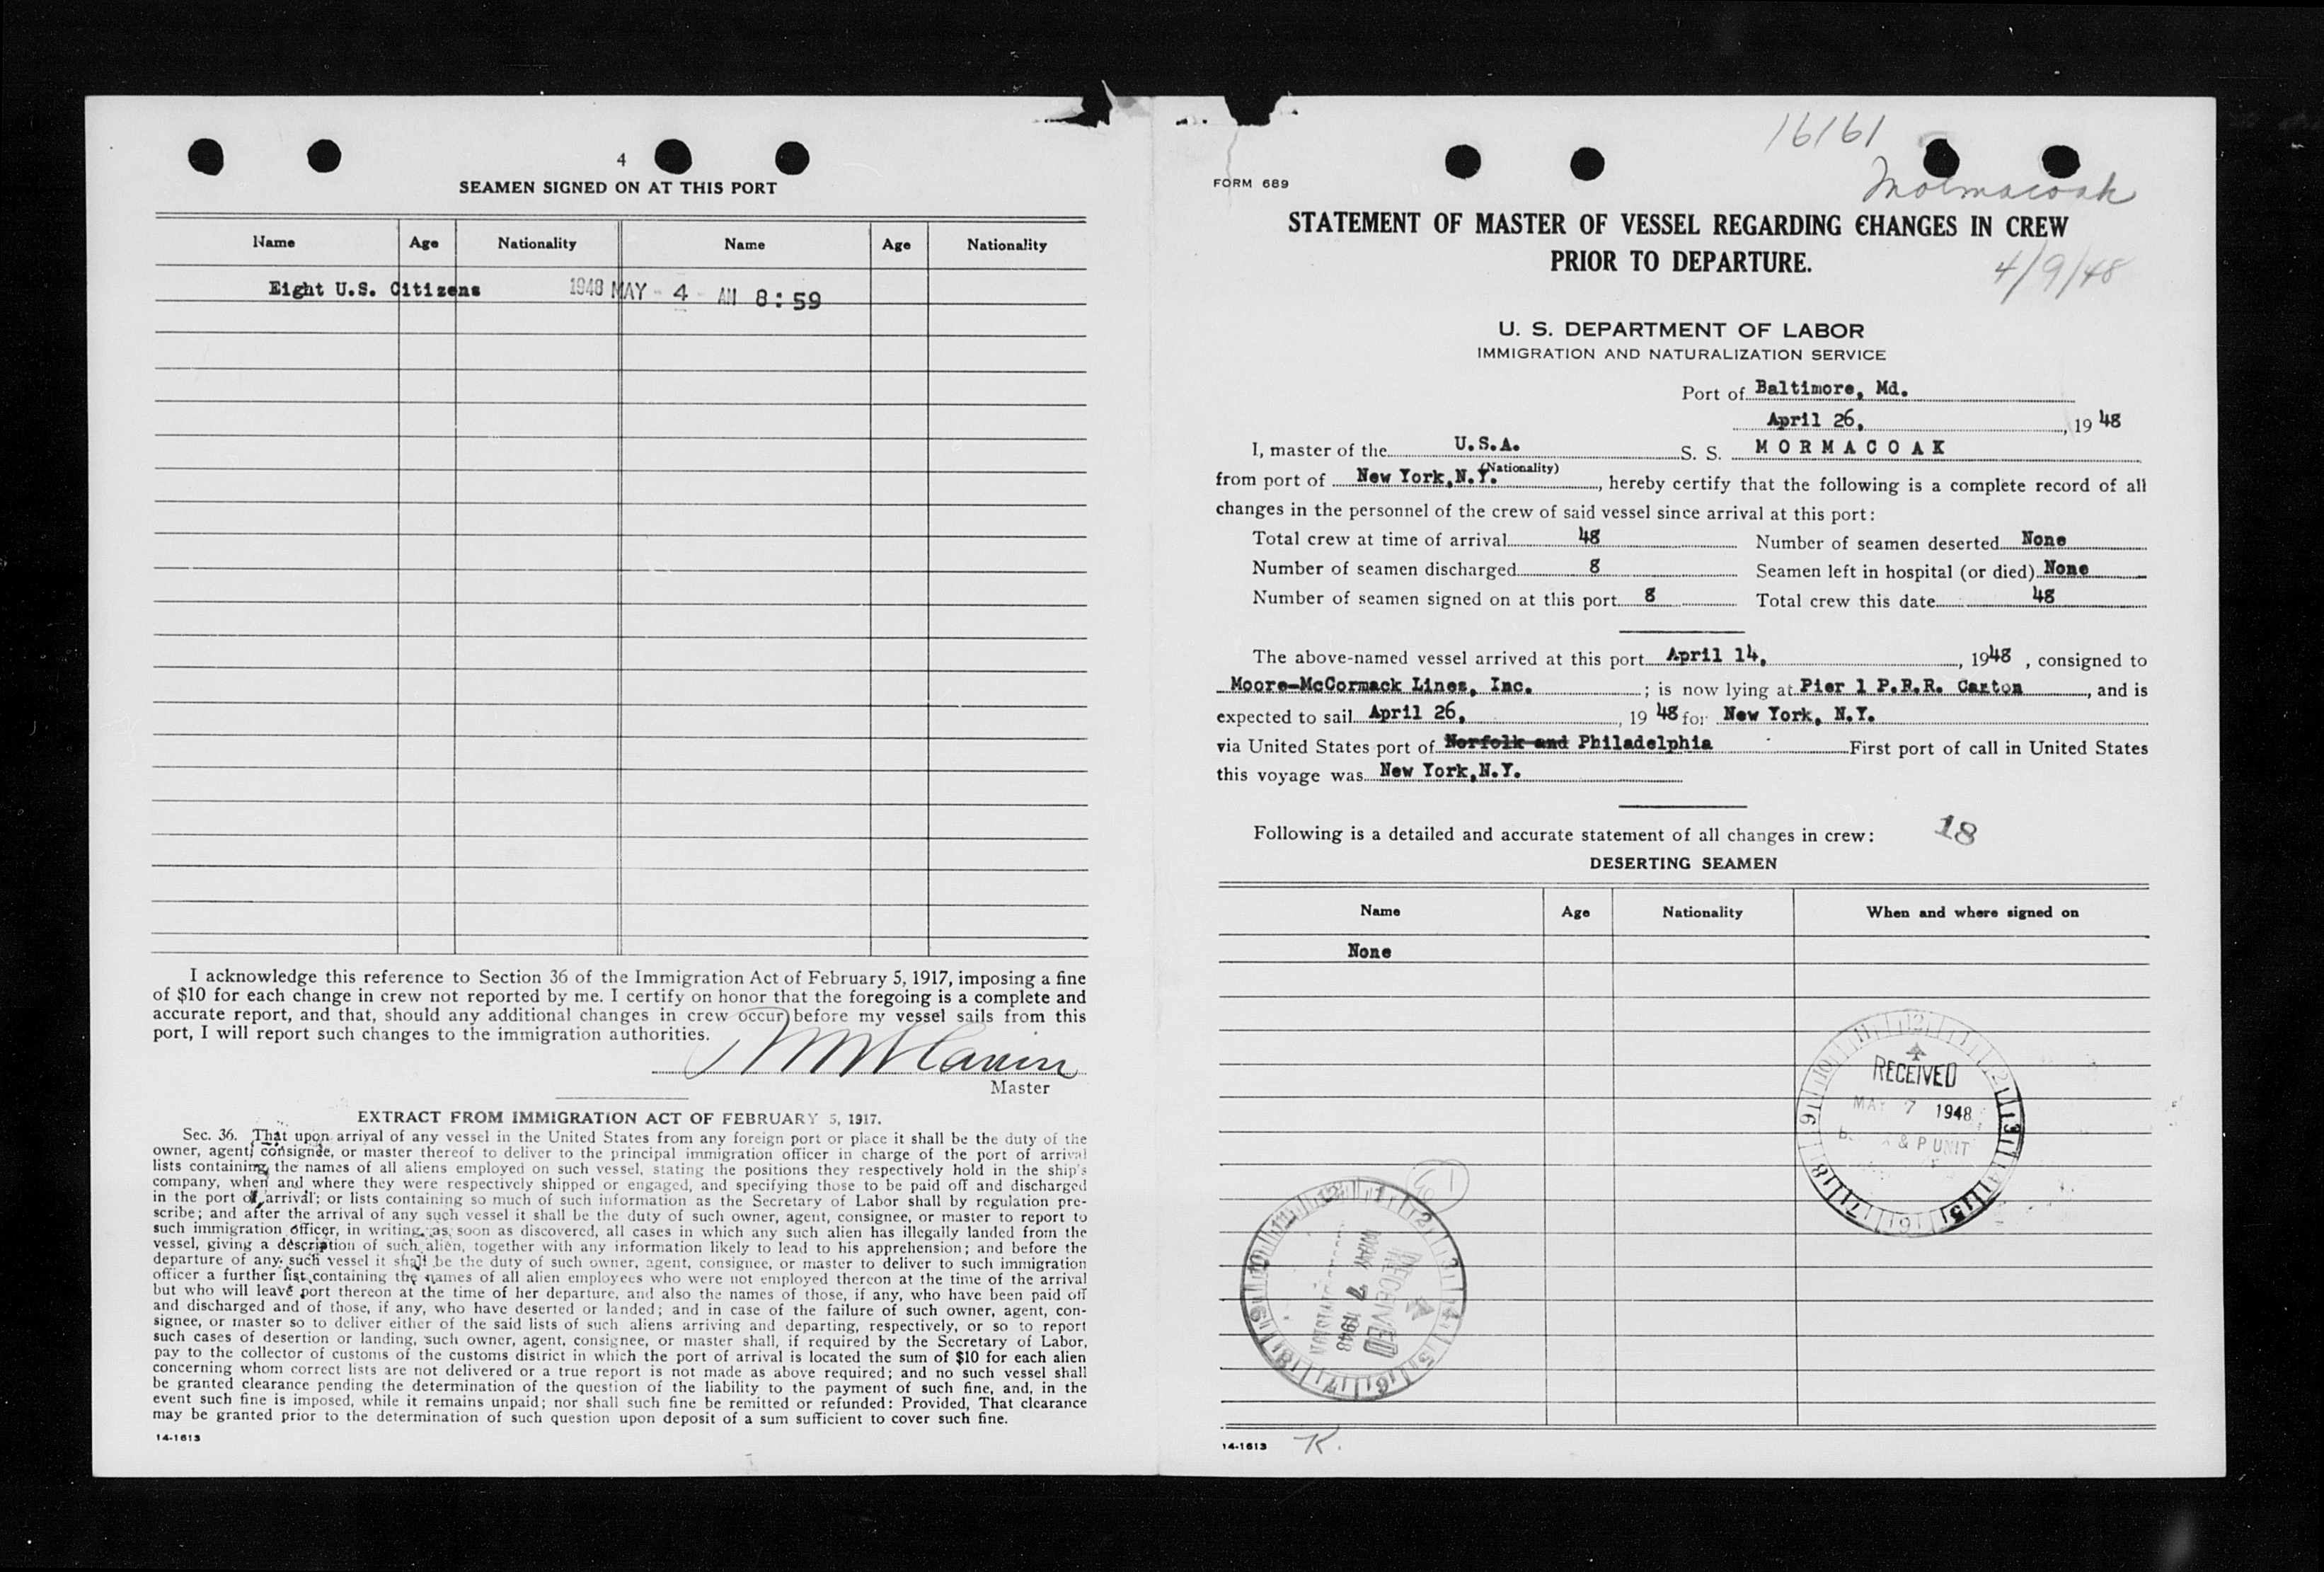 4
SEAMEN SIGNED ON AT THIS PORT
Name Age Nationality Name Age Nationality
Eight U.S. Citizens 1948 MAY - 4 AM 8:59
I acknowledge this reference to Section 36 of the Immigration Act of February 5, 1917, imposing a fine
of $10 for each change in crew not reported by me. I certify on honor that the foregoing is a complete and
accurate report, and that, should any additional changes in crew occur before my vessel sails from this
port, I will report such changes to the immigration authorities.
Master
EXTRACT FROM IMMIGRATION ACT OF FEBRUARY 5, 1917.
Sec. 36. That upon arrival of any vessel in the United States from any foreign port or place it shall be the duty of the
owner, agent, consignee, or master thereof to deliver to the principal immigration officer in charge of the port of arrival
lists containing the names of all aliens employed on such vessel, stating the positions they respectively hold in the ship's
company, when and where they were respectively shipped or engaged, and specifying those to be paid off and discharged
in the port of arrival; or lists containing so much of such information as the Secretary of Labor shall by regulation pre-
scribe; and after the arrival of any such vessel it shall be the duty of such owner, agent, consignee, or master to report to
such immigration officer, in writing, as soon as discovered, all cases in which any such alien has illegally landed from the
vessel, giving a description of such alien, together with any information likely to lead to his apprehension; and before the
departure of any such vessel it shall be the duty of such owner, agent, consignee, or master to deliver to such immigration
officer a further list containing the names of all alien employees who were not employed thereon at the time of the arrival
but who will leave port thereon at the time of her departure, and also the names of those, if any, who have been paid off
and discharged and of those, if any, who have deserted or landed; and in case of the failure of such owner, agent, con-
signee, or master so to deliver either of the said lists of such aliens arriving and departing, respectively, or so to report
such cases of desertion or landing, such owner, agent, consignee, or master shall, if required by the Secretary of Labor,
pay to the collector of customs of the customs district in which the port of arrival is located the sum of $10 for each alien
concerning whom correct lists are not delivered or a true report is not made as above required; and no such vessel shall
be granted clearance pending the determination of the question of the liability to the payment of such fine, and, in the
event such fine is imposed, while it remains unpaid; nor shall such fine be remitted or refunded: Provided, That clearance
may be granted prior to the determination of such question upon deposit of a sum sufficient to cover such fine.
14-1613
16161
Mormacoak
FORM 689
STATEMENT OF MASTER OF VESSEL REGARDING CHANGES IN CREW
PRIOR TO DEPARTURE.
4/9/48
U. S. DEPARTMENT OF LABOR
IMMIGRATION AND NATURALIZATION SERVICE
Port of Baltimore, Md.
April 26, , 19 48
I, master of the U.S.A. S. S. MORMACOAK
(Nationality)
from port of New York,N.Y. , hereby certify that the following is a complete record of all
changes in the personnel of the crew of said vessel since arrival at this port:
Total crew at time of arrival 48 Number of seamen deserted None
Number of seamen discharged 8 Seamen left in hospital (or died) None
Number of seamen signed on at this port 8 Total crew this date 48
The above-named vessel arrived at this port April 14, , 1948 , consigned to
Moore-McCormack Lines, Inc. ; is now lying at Pier 1 P.R.R. Canton , and is
expected to sail April 26, , 19 48 for New York, N.Y.
via United States port of Norfolk and Philadelphia First port of call in United States
this voyage was New York,N.Y.
18
Following is a detailed and accurate statement of all changes in crew:
DESERTING SEAMEN
Name Age Nationality When and where signed on
None
RECEIVED
MAY 7 1948
& P UNIT
RECEIVED
MAY 7 1948
14-1613 K.